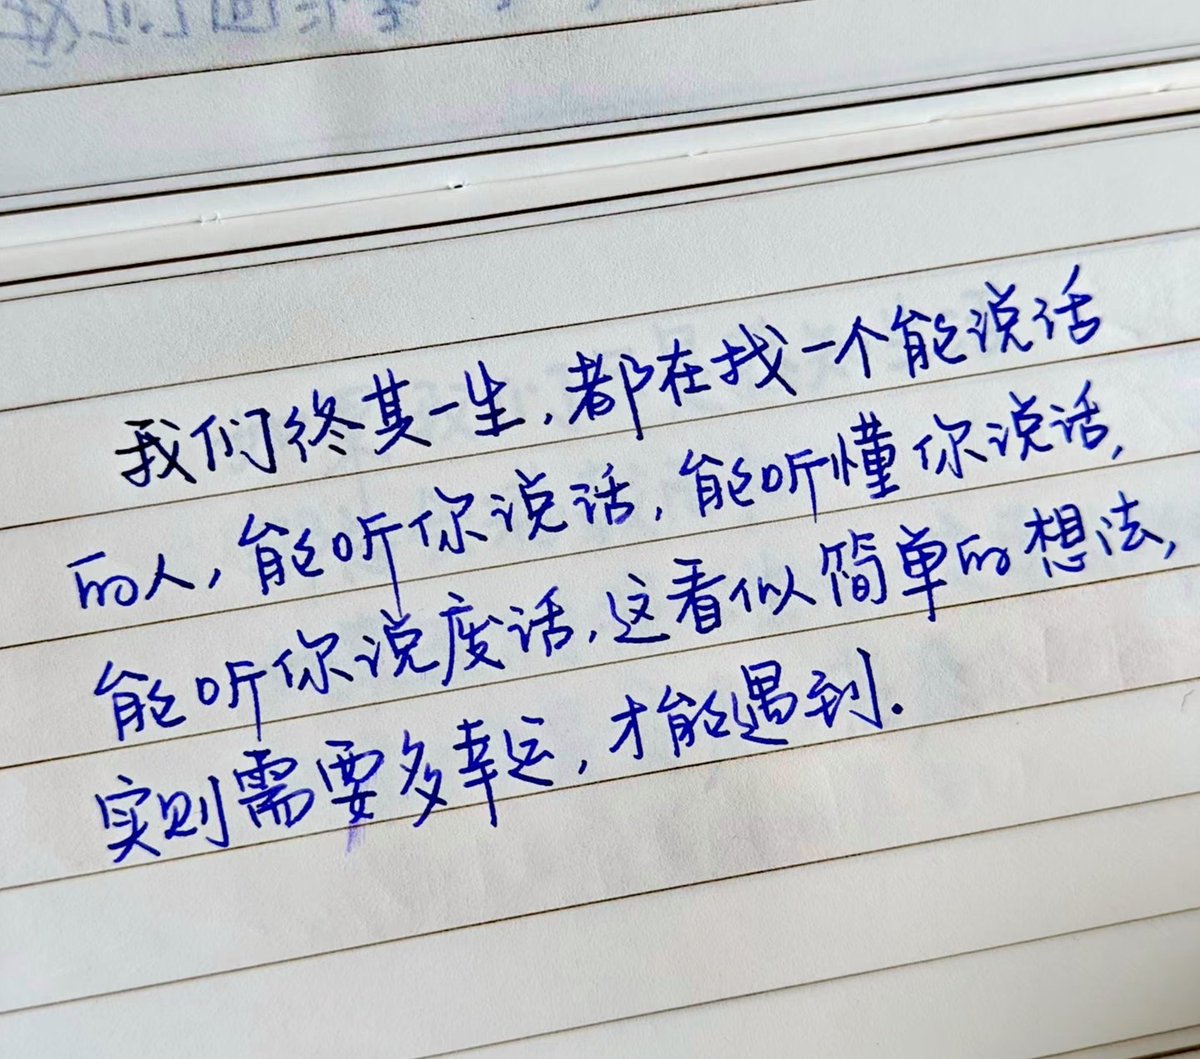 我们终其一生,都在找一个能说话
的人,能听你说话,能听懂你说话,
能听你说废话,这看似简单的想法,
实则需要多幸运,才能遇到.